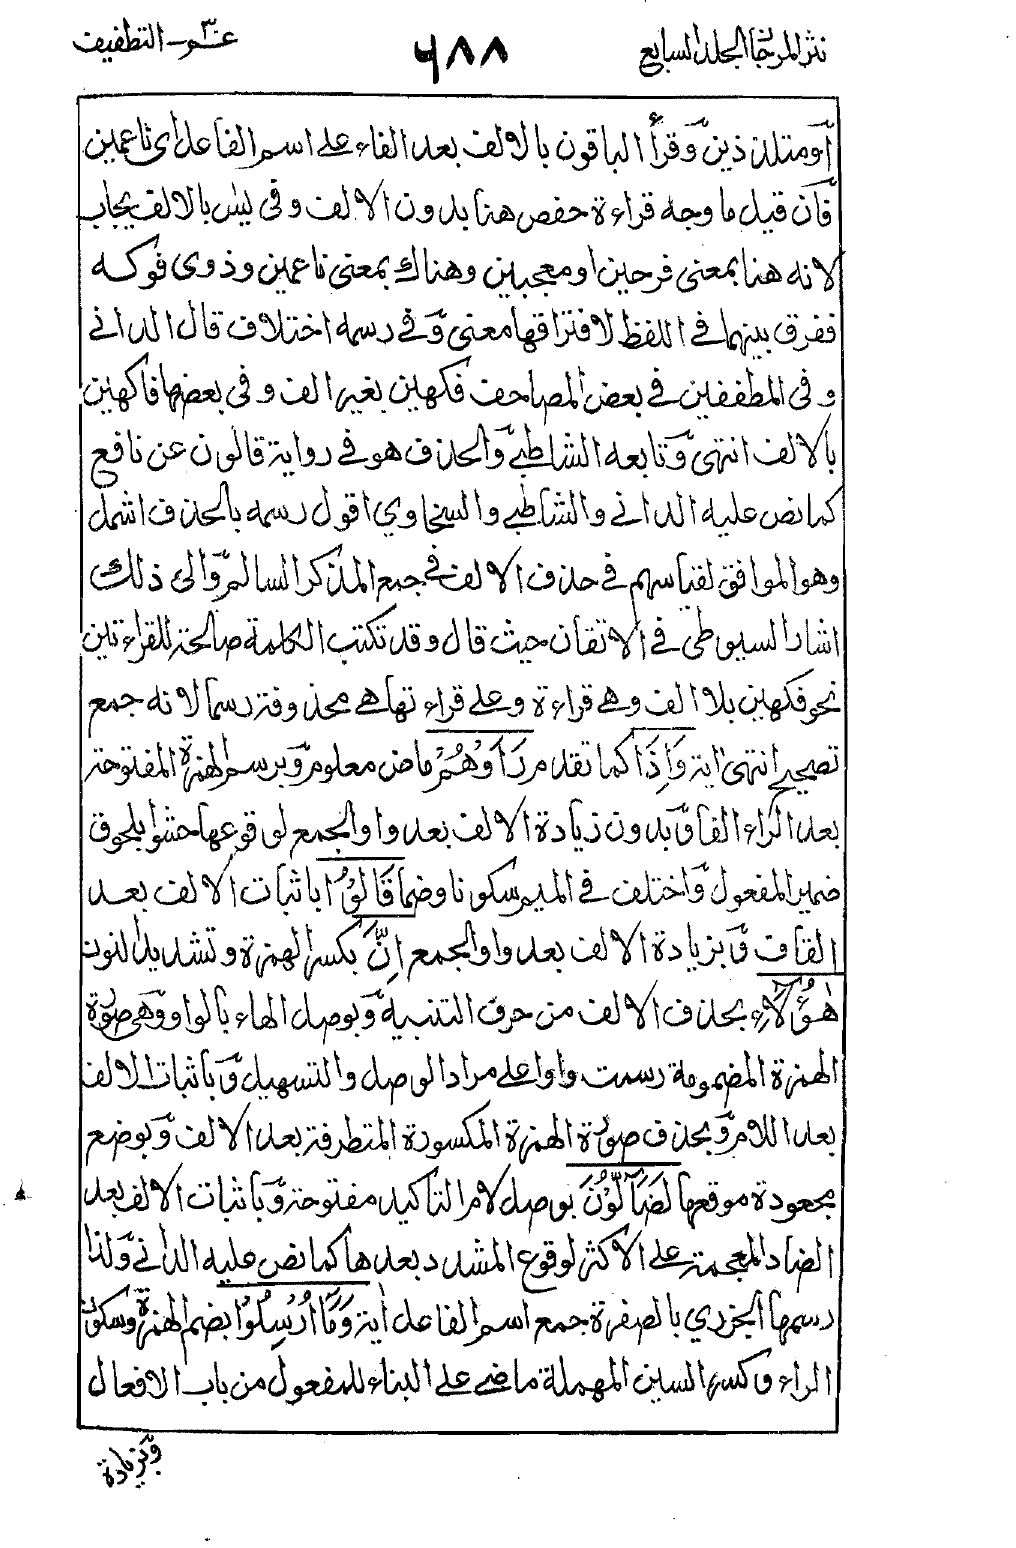 نثر المرجان الجلد السابع
٦٨٨
عم ٣٠ التطفيف
أو متلذذين وقرأ الباقون بالالف بعد الفاء على اسم الفاعل اى ناعمين
فان قيل ما وجه قراءة حفص هنا بدون الالف وفى يس بالالف يجاب
لانه هنا بمعنى فرحين او معجبين وهناك بمعنى ناعمين وذوى فوكه
ففرق بينهما فى اللفظ لافتراقهما معنى وفى رسمه اختلاف قال الدانى
وفى المطففين فى بعض المصاحف فكهين بغير الف وفى بعضها فاكهين
بالالف انتهى وتابعه الشاطبى والحذف هو فى رواية قالون عن نافع
كما نص عليه الدانى والشاطبى والسخاوي اقول رسمه بالحذف اشمل
وهو الموافق لقياسهم فى حذف الالف فى جمع المذكر السالم والى ذلك
اشار السيوطى فى الاتقان حيث قال وقد تكتب الكلمة صالحة للقراءتين
نحو فكهين بلا الف وهى قراءة وعلى قراءتها هى محذوفة رسما لانه جمع
تصحيح انتهى اية وَاِذَا كما تقدم رَاَوْهُمْ ماض معلوم وبرسم الهمزة المفتوحة
بعد الراء الفا وبدون زيادة الالف بعد واو الجمع لوقوعها حشوا بلحوق
ضمير المفعول واختلف فى الميم سكونا وضما قَالُوْا باثبات الالف بعد
القاف وبزيادة الالف بعد واو الجمع اِنَّ بكسر الهمزة وتشديد النون
هٰؤُلَآءِ بحذف الالف من حرف التنبيه وبوصل الهاء بالواو وهى صورة
الهمزة المضمومة رسمت واوا على مراد الوصل والتسهيل وباثبات الالف
بعد اللام وبحذف صورة الهمزة المكسورة المتطرفة بعد الالف وبوضع
مجعودة موقعها لَضَآلُّوْنَ بوصل لام التاكيد مفتوحة وباثبات الالف بعد
الضاد المعجمة على الاكثر لوقوع المشدد بعدها كما نص عليه الدانى ولذا
رسمها الجزري بالصفرة جمع اسم الفاعل اية وَمَآ اُرْسِلُوْا بضم الهمزة وسكون
الراء وكسر السين المهملة ماضى على البناء للمفعول من باب الافعال
وبزيادة